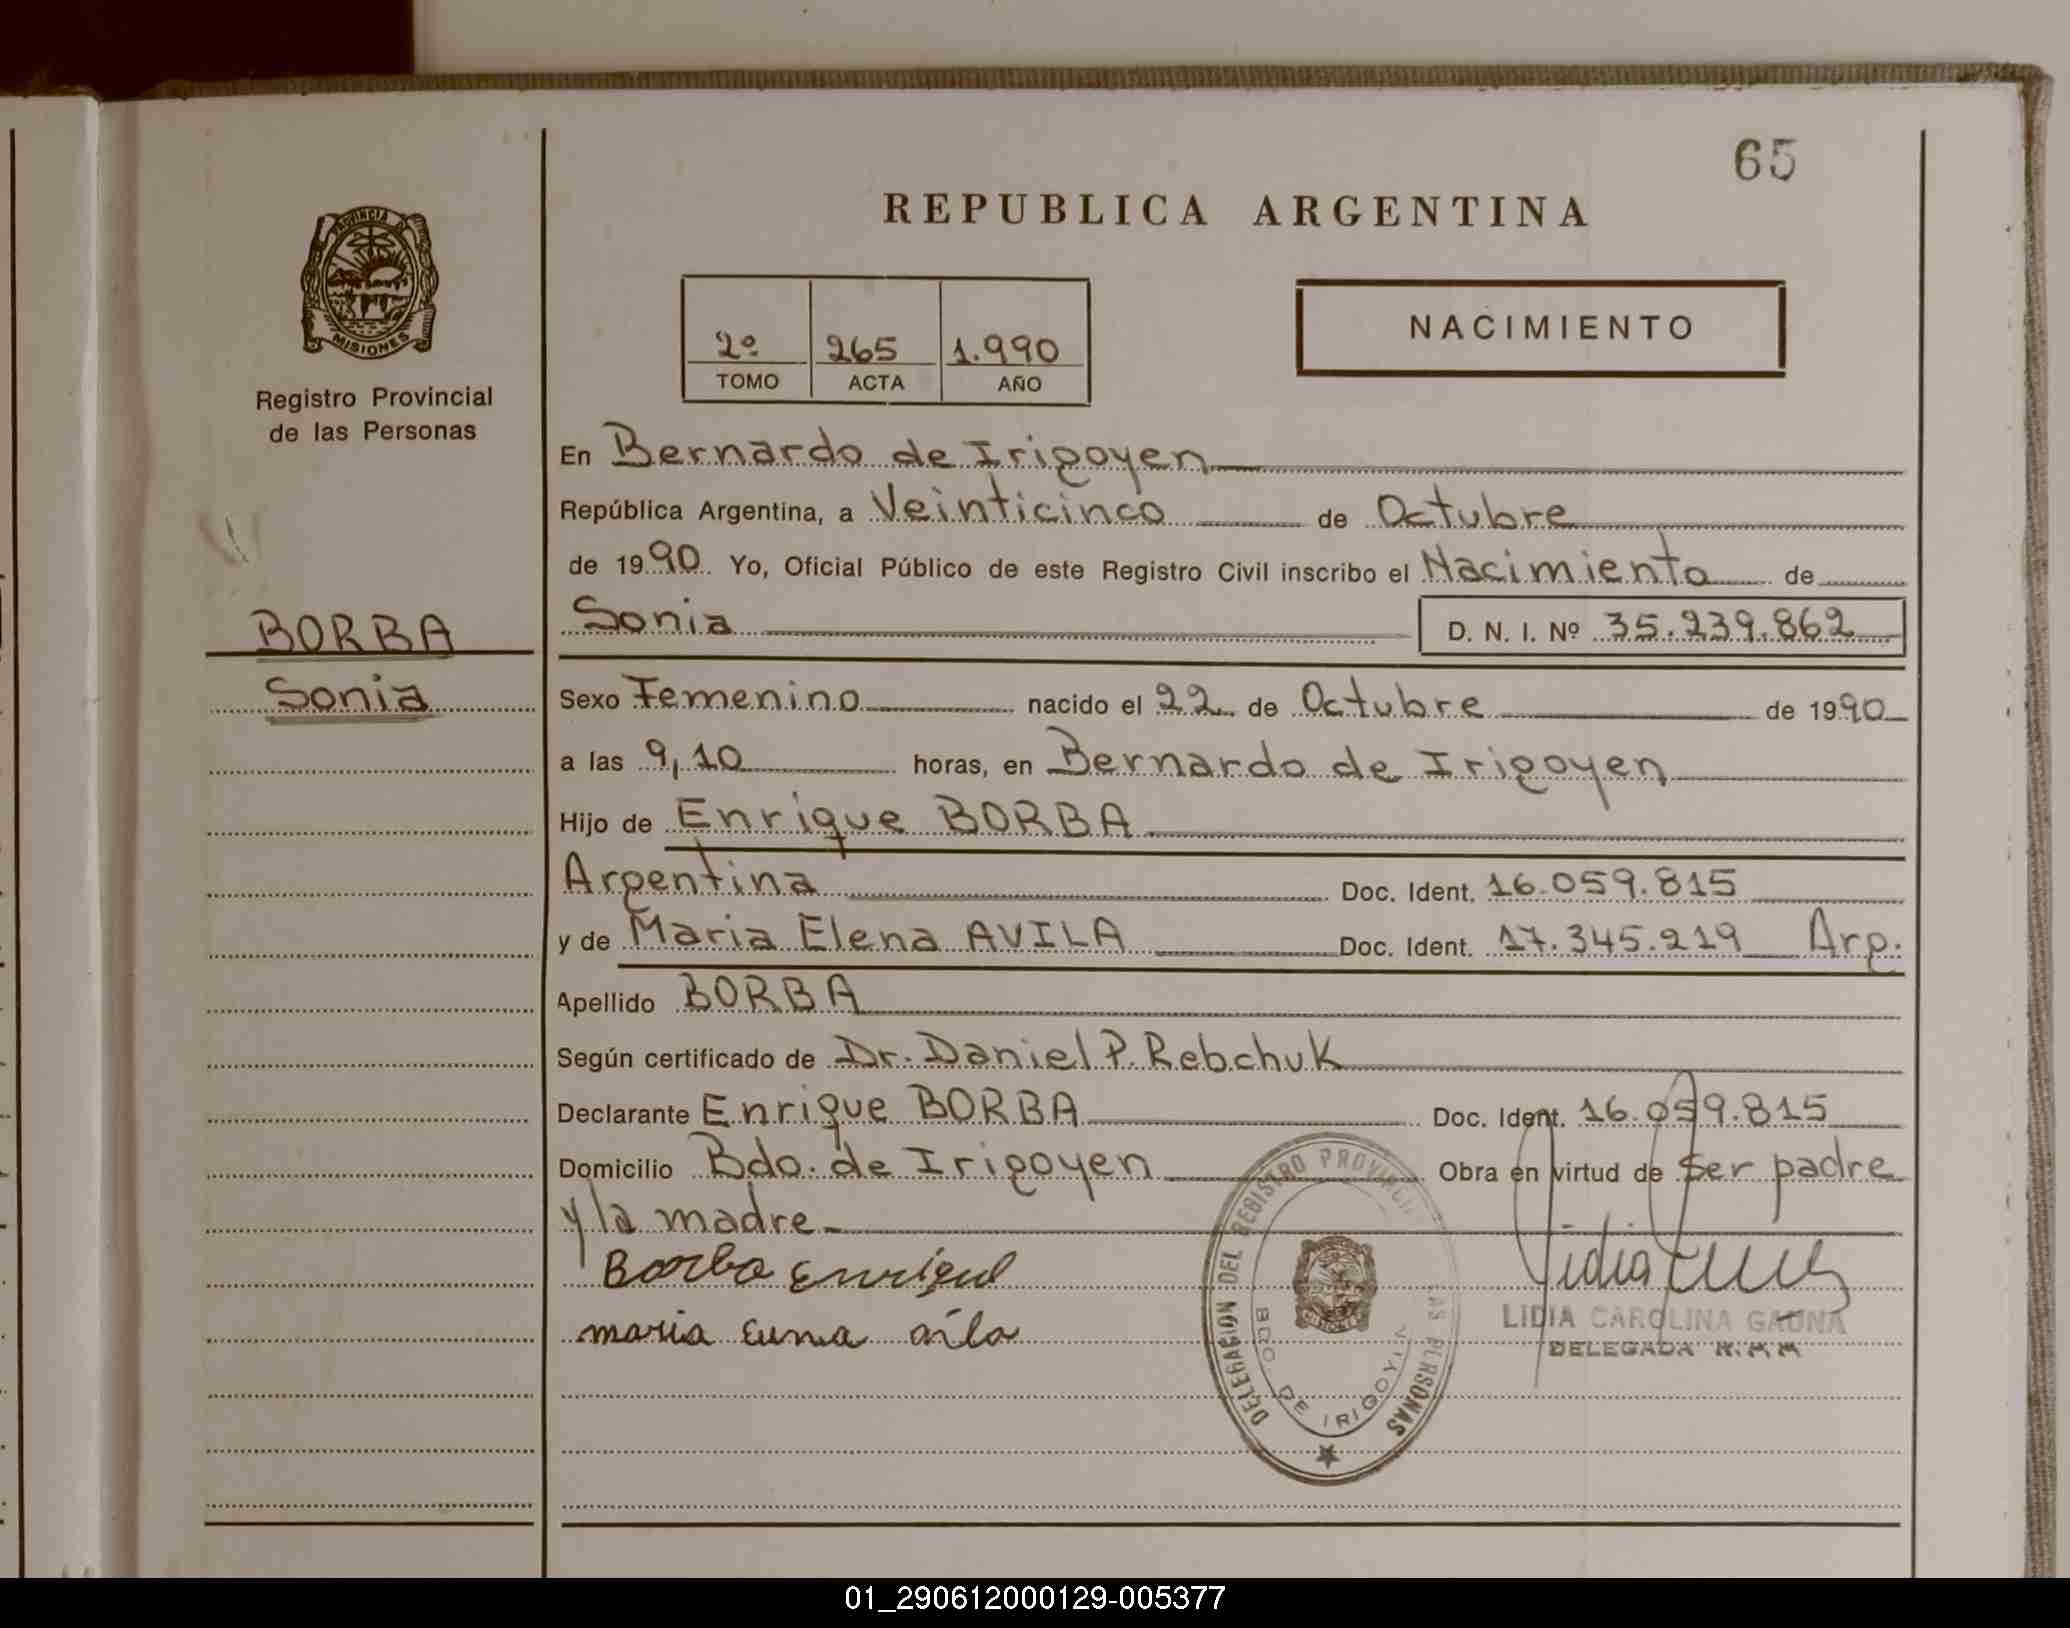 65
REPUBLICA ARGENTINA
PROVINCIA DE
MISIONES
Registro Provincial
de las Personas
2º 265 1.990
TOMO ACTA AÑO
NACIMIENTO
En Bernardo de Irigoyen
República Argentina, a Veinticinco de Octubre
de 1990 Yo, Oficial Público de este Registro Civil inscribo el Nacimiento de
Sonia D. N. I. Nº 35.239.862
BORBA
Sonia
Sexo Femenino nacido el 22 de Octubre de 1990
a las 9,10 horas, en Bernardo de Irigoyen
Hijo de Enrique BORBA
Argentina Doc. Ident. 16.059.815
y de Maria Elena AVILA Doc. Ident. 17.345.219 Arg.
Apellido BORBA
Según certificado de Dr. Daniel P. Rebchuk
Declarante Enrique BORBA Doc. Ident. 16.059.815
Domicilio Bdo. de Irigoyen Obra en virtud de ser padre
y la madre
Borba Enrique
maria
DELEGACION DEL REGISTRO PROVINCIAL LAS PERSONAS
BDO DE IRIGOYEN
LIDIA CAROLINA GAUNA
DELEGADA
01_290612000129-005377